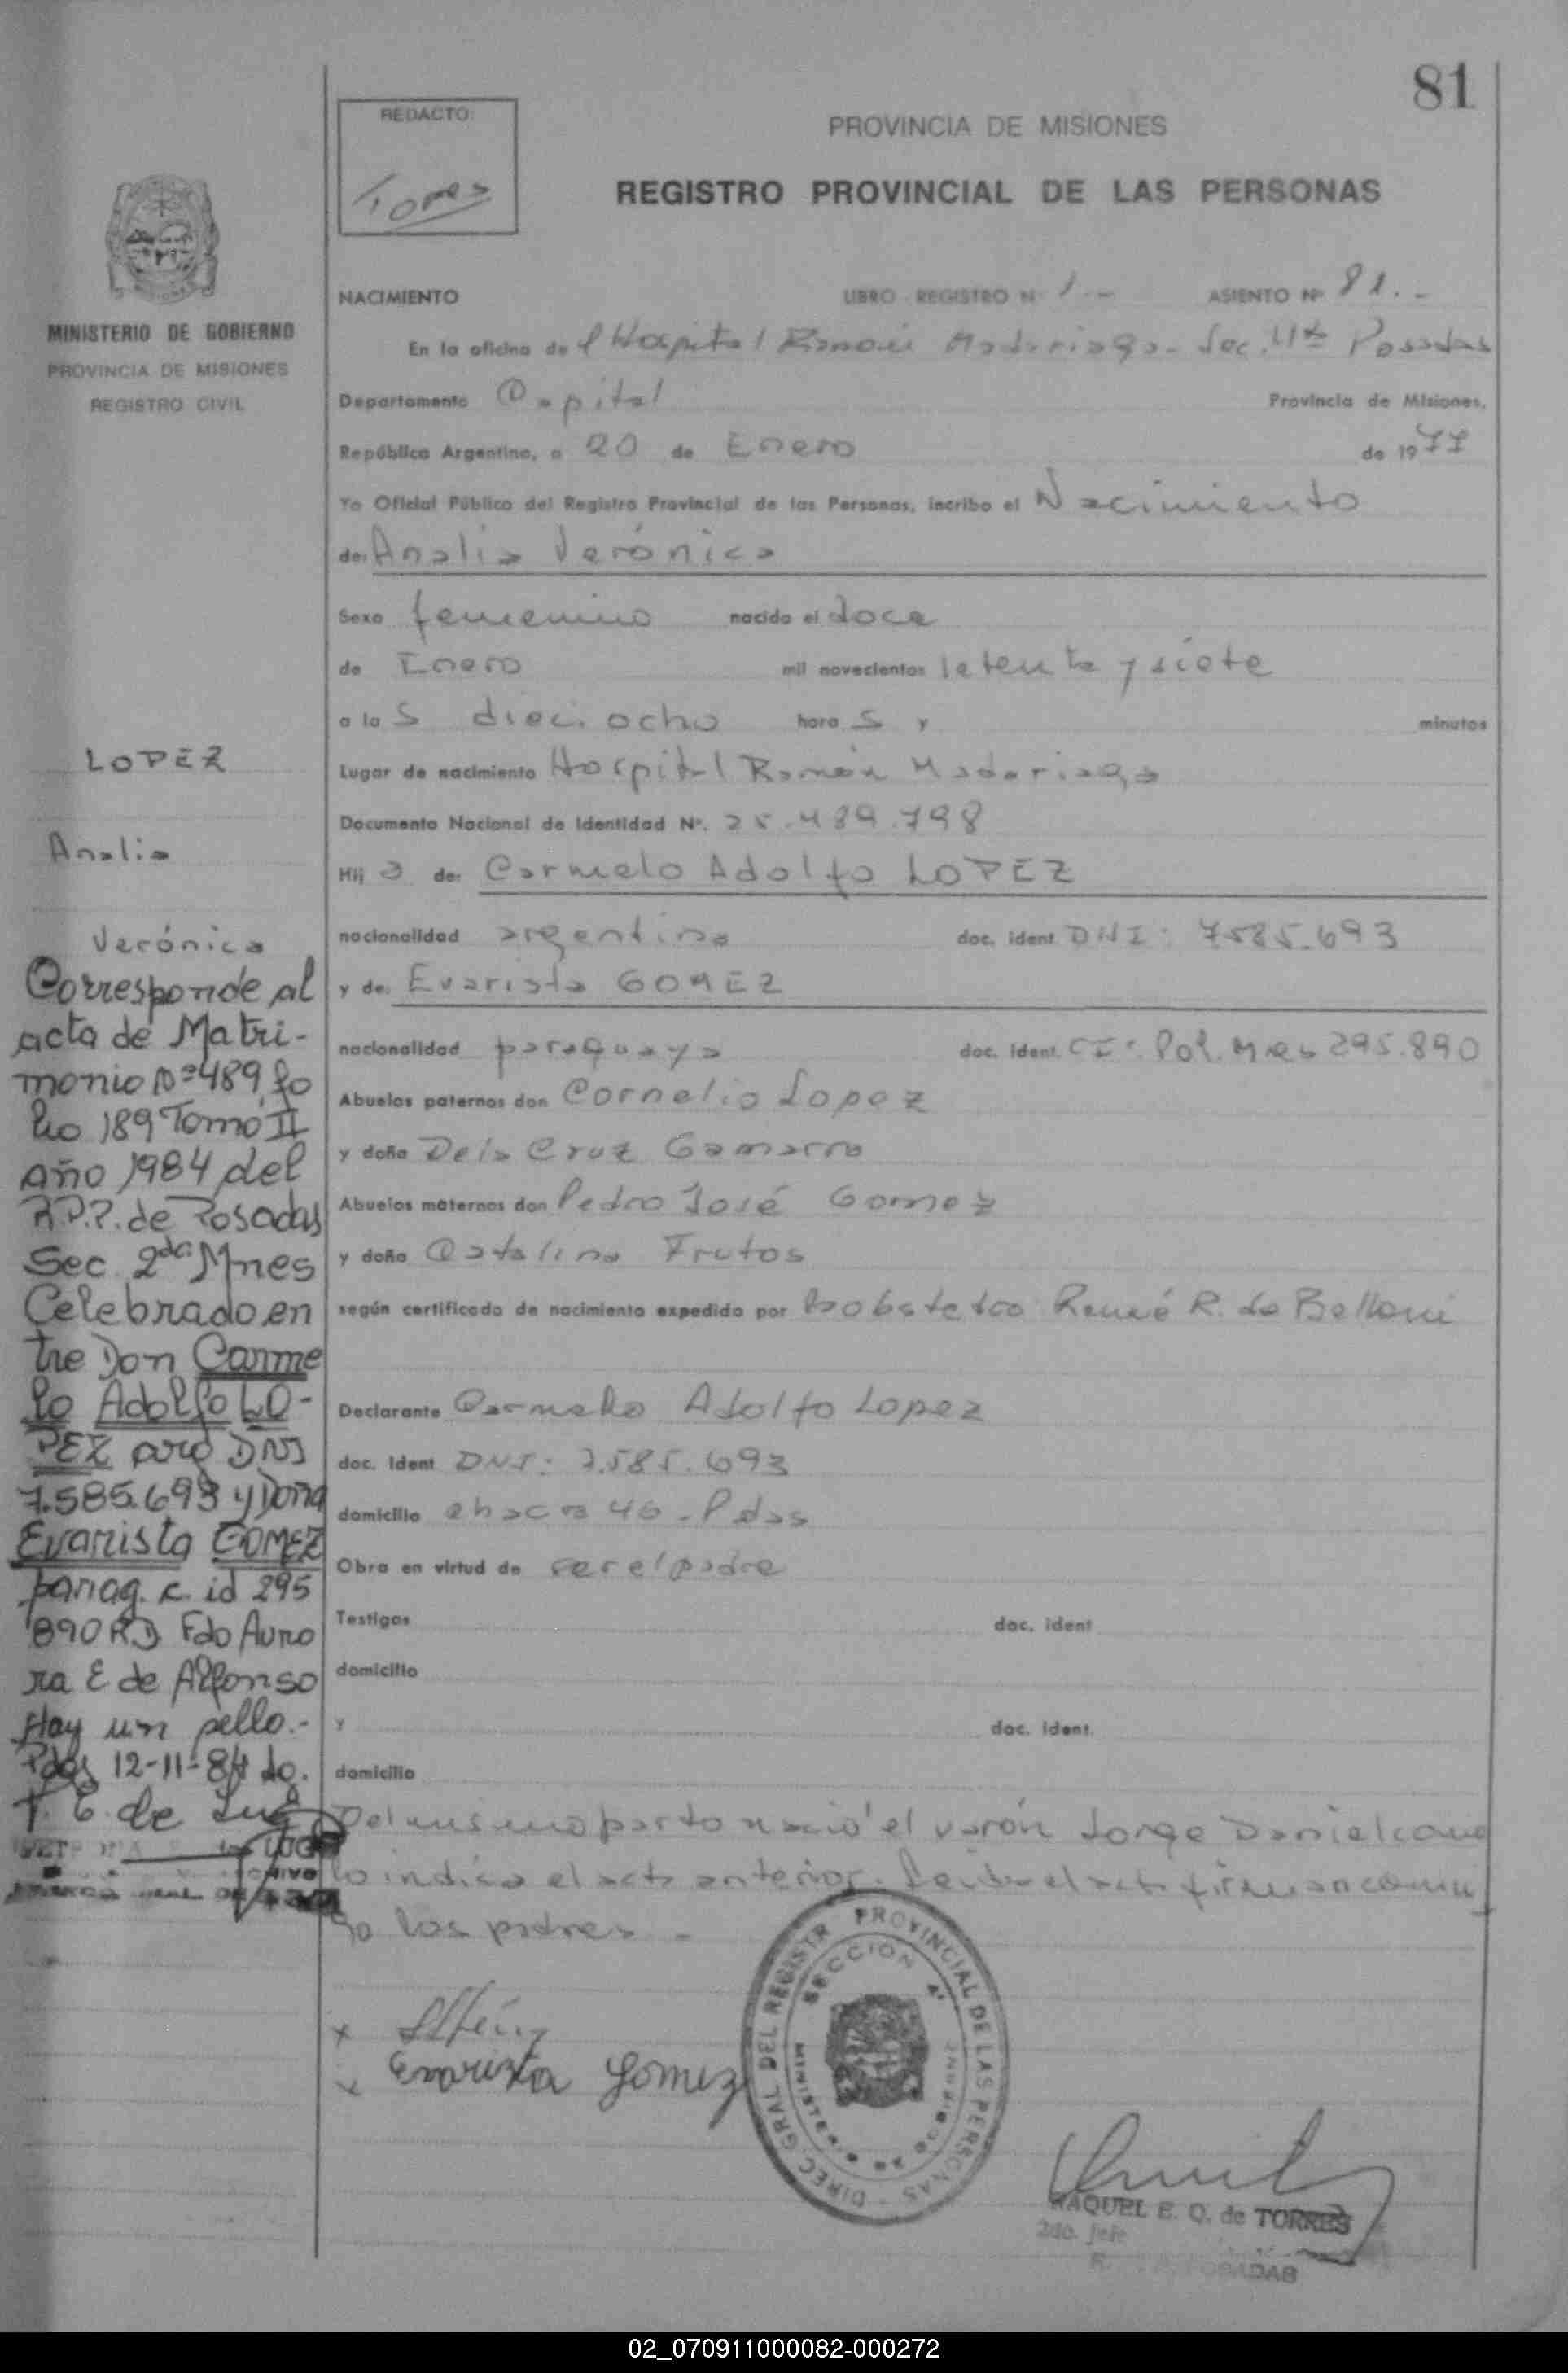 81
REDACTO:
Torres
PROVINCIA DE MISIONES
REGISTRO PROVINCIAL DE LAS PERSONAS
MINISTERIO DE GOBIERNO
PROVINCIA DE MISIONES
REGISTRO CIVIL
NACIMIENTO LIBRO REGISTRO Nº 1.- ASIENTO Nº 81.-
En la oficina de l Hospital Ramón Madariaga - Sec. 4ta Posadas
Departamento Capital Provincia de Misiones,
República Argentina, a 20 de Enero de 1977
Yo Oficial Público del Registro Provincial de las Personas, incribo el Nacimiento
de: Analia Verónica
Sexo femenino nacido el doce
de Enero mil novecientos setenta y siete
a la s dieciocho hora s y minutos
Lugar de nacimiento Hospital Ramón Madariaga
Documento Nacional de Identidad Nº. 25.489.798
Hij a de: Carmelo Adolfo LOPEZ
nacionalidad argentina doc. ident. DNI: 7585.693
y de: Evarista GOMEZ
nacionalidad paraguaya doc. ident. CI: Pol. Mnes 295.890
Abuelos paternos don Cornelio Lopez
y doña Dela Cruz Gamarra
Abuelos maternos don Pedro José Gomez
y doña Catalina Frutos
según certificado de nacimiento expedido por la obstetra Reneé R. de Belloni
Declarante Carmelo Adolfo Lopez
doc. ident DNI: 7.585.693
domicilio chacra 46 - Pdas
Obra en virtud de ser el padre
Testigos doc. ident
domicilio
y doc. ident.
domicilio
Del mismo parto nació el varón Jorge Daniel como
lo indica el acta anterior. Leida el acta firman conmi
go los padres -
LOPEZ
Analia
Verónica
Corresponde al
acta de Matri-
monio Nº 489, fo
lio 189 Tomo II
Año 1984 del
R.P.P. de Posadas
Sec. 2da Mnes
Celebrado en
tre Don Carme
lo Adolfo LO-
PEZ arg DNI
7.585.693 y Doña
Evarista GOMEZ
parag. c. id 295
890 RD Fdo Auro
ra E de Alfonso
Hay un sello.-
Pdas 12-11-84 do.
x
x Evarista Gomez
DIREC. GRAL DEL REGISTR PROVINCIAL DE LAS PERSONAS
SECCION 4ª
RAQUEL E. Q. de TORRES
2do. Jefe
02_070911000082-000272